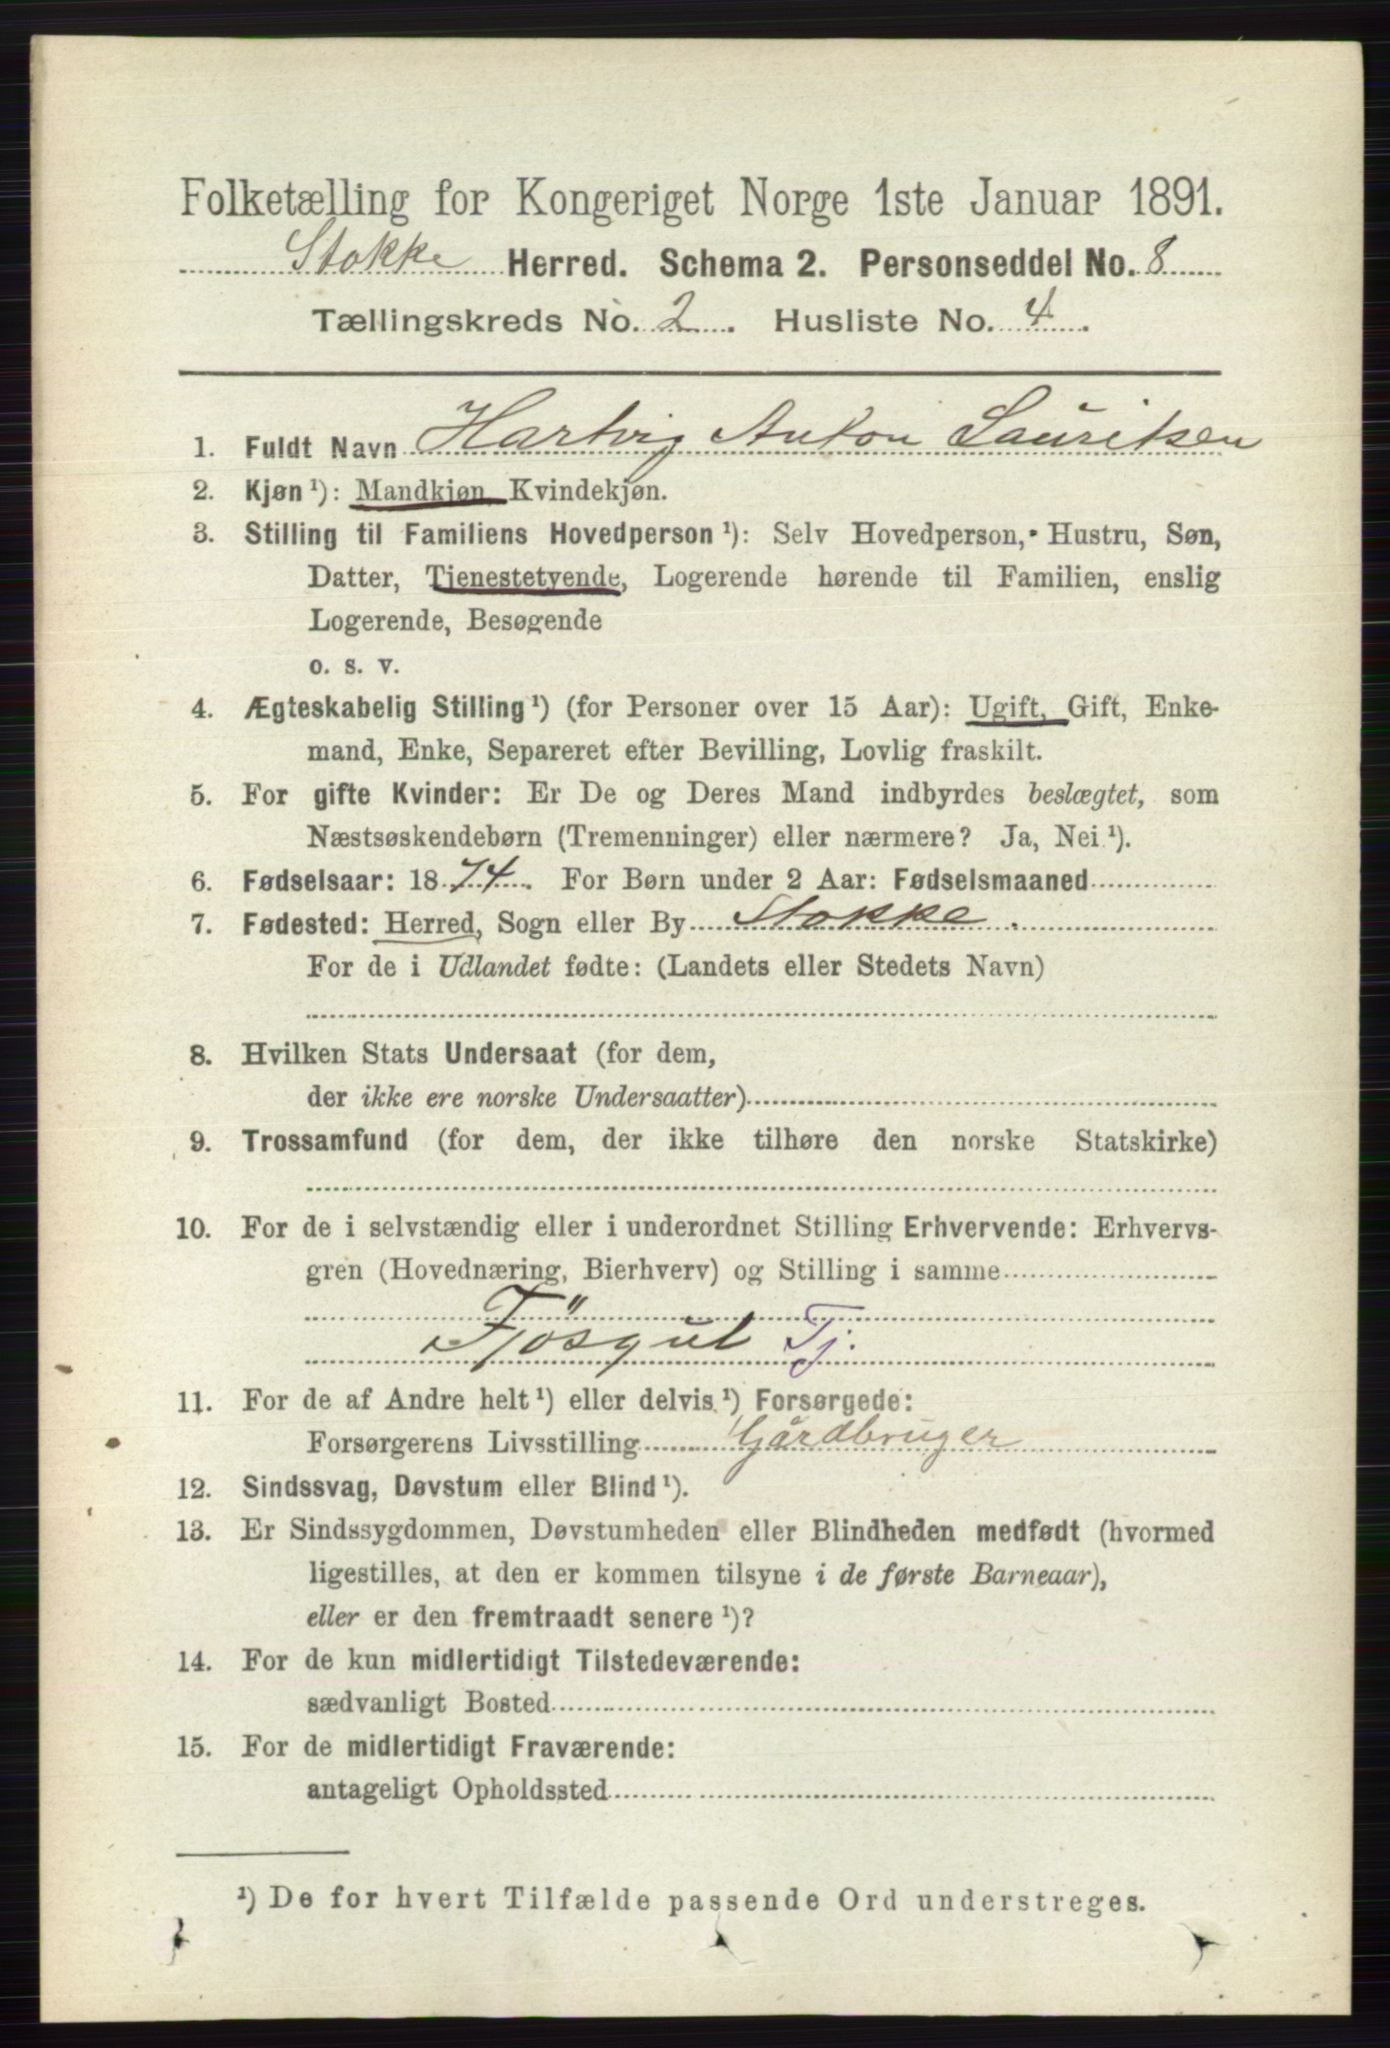 Folketælling for Kongeriget Norge 1ste Januar 1891.
Stokke Herred. Schema 2. Personseddel No. 8
Tællingskreds No. 2. Husliste No. 4.
1. Fuldt Navn Hartvig Anton Lauritsen
2. Kjøn¹): Mandkjøn, Kvindekjøn.
3. Stilling til Familiens Hovedperson¹): Selv Hovedperson, Hustru, Søn,
Datter, Tjenestetyende, Logerende hørende til Familien, enslig
Logerende, Besøgende
o. s. v.
4. Ægteskabelig Stilling¹) (for Personer over 15 Aar): Ugift, Gift, Enke-
mand, Enke, Separeret efter Bevilling, Lovlig fraskilt.
5. For gifte Kvinder: Er De og Deres Mand indbyrdes beslægtet, som
Næstsøskendebørn (Tremenninger) eller nærmere? Ja, Nei¹).
6. Fødselsaar: 1874. For Børn under 2 Aar: Fødselsmaaned
7. Fødested: Herred, Sogn eller By Stokke.
For de i Udlandet fødte: (Landets eller Stedets Navn)
8. Hvilken Stats Undersaat (for dem,
der ikke ere norske Undersaatter)
9. Trossamfund (for dem, der ikke tilhøre den norske Statskirke)
10. For de i selvstændig eller i underordnet Stilling Erhvervende: Erhvervs-
gren (Hovednæring, Bierhverv) og Stilling i samme
Fjösgut Tj.
11. For de af Andre helt¹) eller delvis¹) Forsørgede:
Forsørgerens Livsstilling Gårdbruger
12. Sindssvag, Døvstum eller Blind¹).
13. Er Sindssygdommen, Døvstumheden eller Blindheden medfødt (hvormed
ligestilles, at den er kommen tilsyne i de første Barneaar),
eller er den fremtraadt senere¹)?
14. For de kun midlertidigt Tilstedeværende:
sædvanligt Bosted
15. For de midlertidigt Fraværende:
antageligt Opholdssted
¹) De for hvert Tilfælde passende Ord understreges.